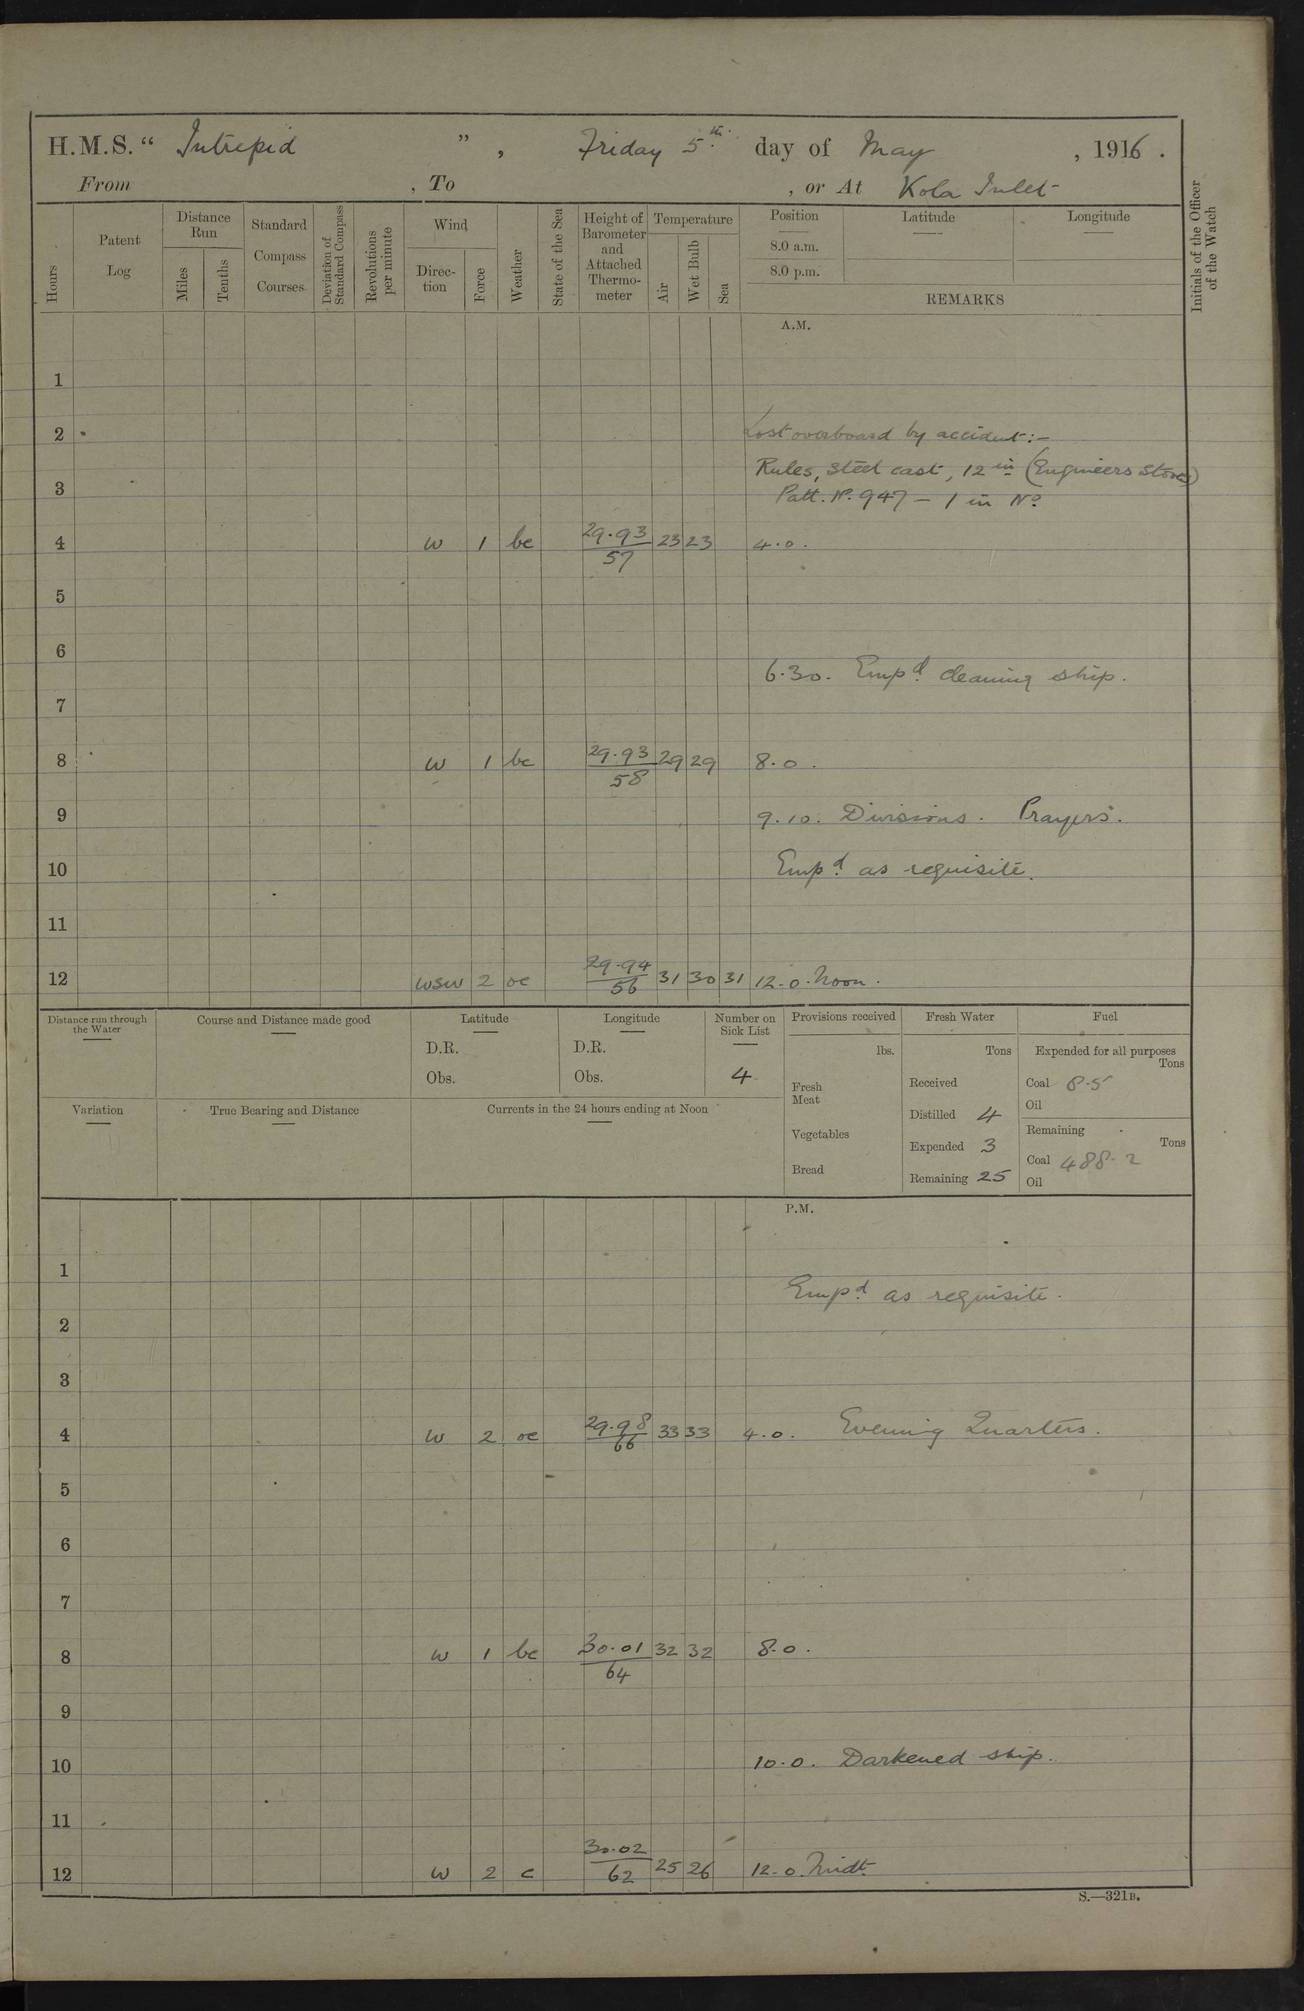 H.M.S. " Intrepid ", Friday 5th. day of May, 1916.
From , To , or At Kola Inlet
Hours
Patent Log
Distance Run
Miles
Tenths
Standard Compass Courses
Deviation of Standard Compass
Revolutions per minute
Wind
Direction
Force
Weather
State of the Sea
Height of Barometer and Attached Thermometer
Temperature
Air
Wet Bulb
Sea
Position
8.0 a.m.
8.0 p.m.
Latitude
Longitude
REMARKS
Initials of the Officer of the Watch
A.M.
1
2 Lost overboard by accident:-
Rules, steel cast, 12 in (Engineers Stores)
3 Patt. No. 947 - 1 in No
4 W 1 bc 29.93 57 23 23 4.0.
5
6
6.30. Empd. cleaning ship.
7
8 W 1 bc 29.93 58 29 29 8.0.
9 9.10. Divisions. Prayers.
10 Empd. as requisite.
11
12 WSW 2 oc 29.94 56 31 30 31 12.0. Noon.
Distance run through the Water
Course and Distance made good
Latitude
D.R.
Obs.
Longitude
D.R.
Obs.
Number on Sick List
4
Variation
True Bearing and Distance
Currents in the 24 hours ending at Noon
Provisions received
lbs.
Fresh Meat
Vegetables
Bread
Fresh Water
Tons
Received
Distilled 4
Expended 3
Remaining 25
Fuel
Expended for all purposes
Tons
Coal 8.5
Oil
Remaining
Tons
Coal 488.2
Oil
P.M.
1
Empd as requisite.
2
3
4 W 2 oc 29.98 66 33 33 4.0. Evening Quarters.
5
6
7
8 W 1 bc 30.01 64 32 32 8.0.
9
10 10.0. Darkened ship.
11
12 W 2 c 30.02 62 25 26 12.0. Midt.
S.—321B.